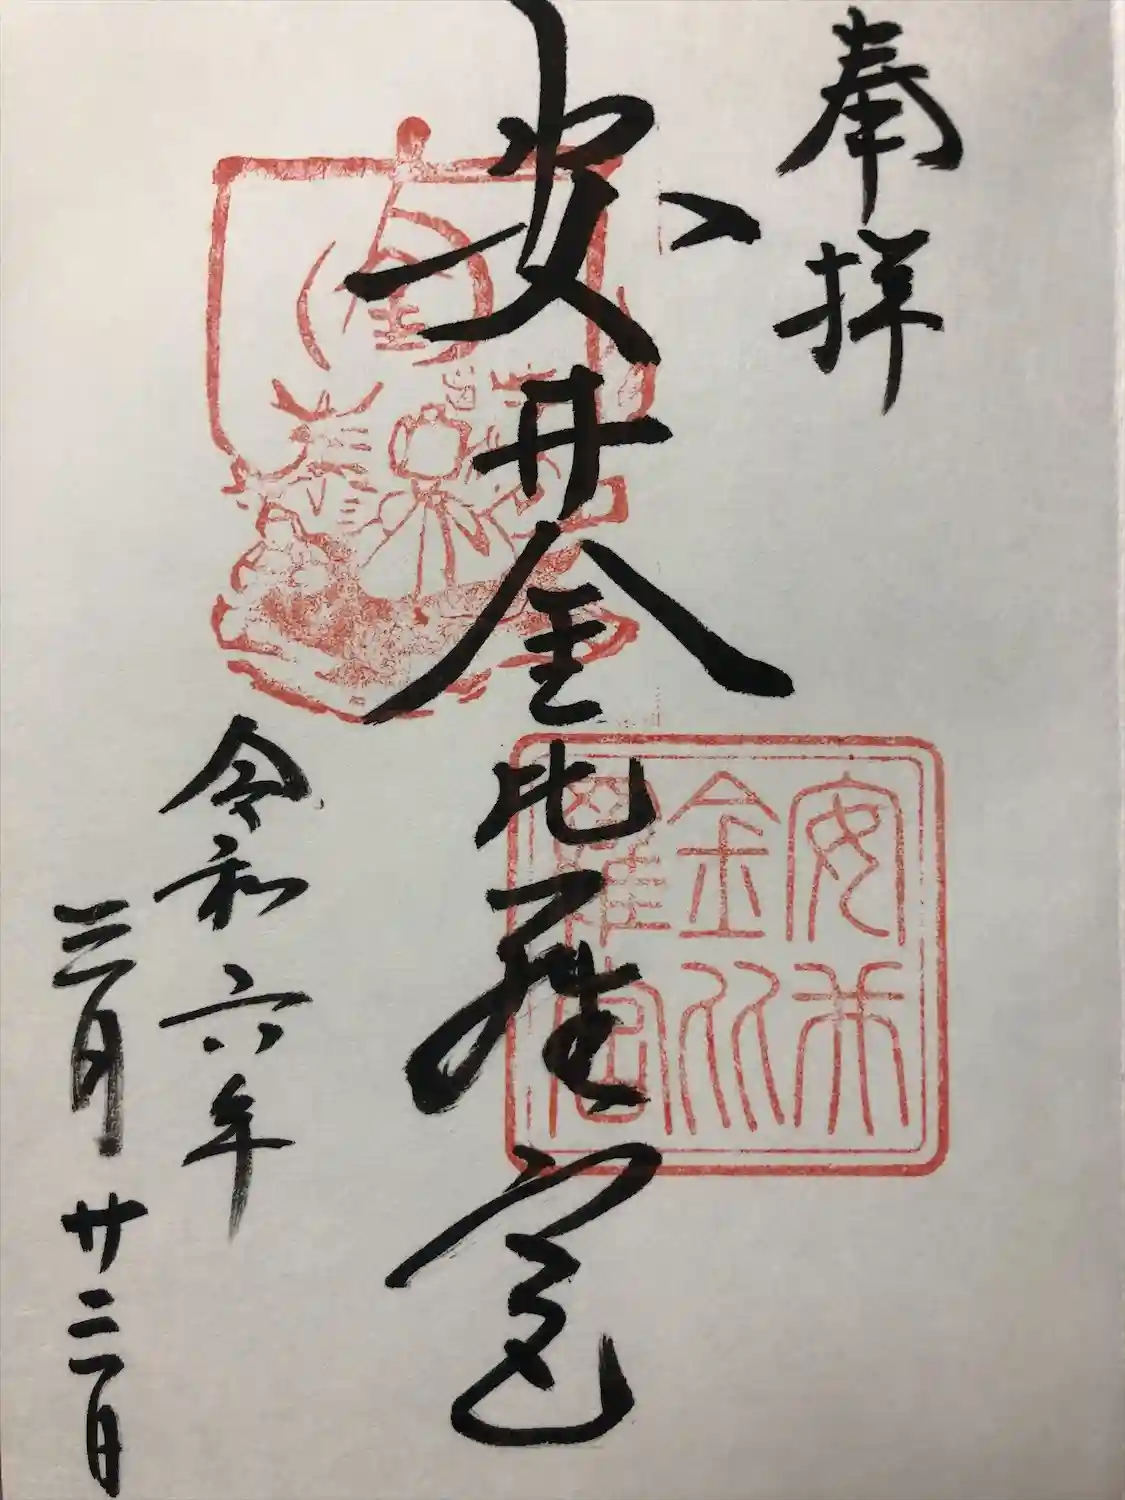 奉拝
安井金比羅宮
安井
金比
羅宮
令和六年
三月廿二日